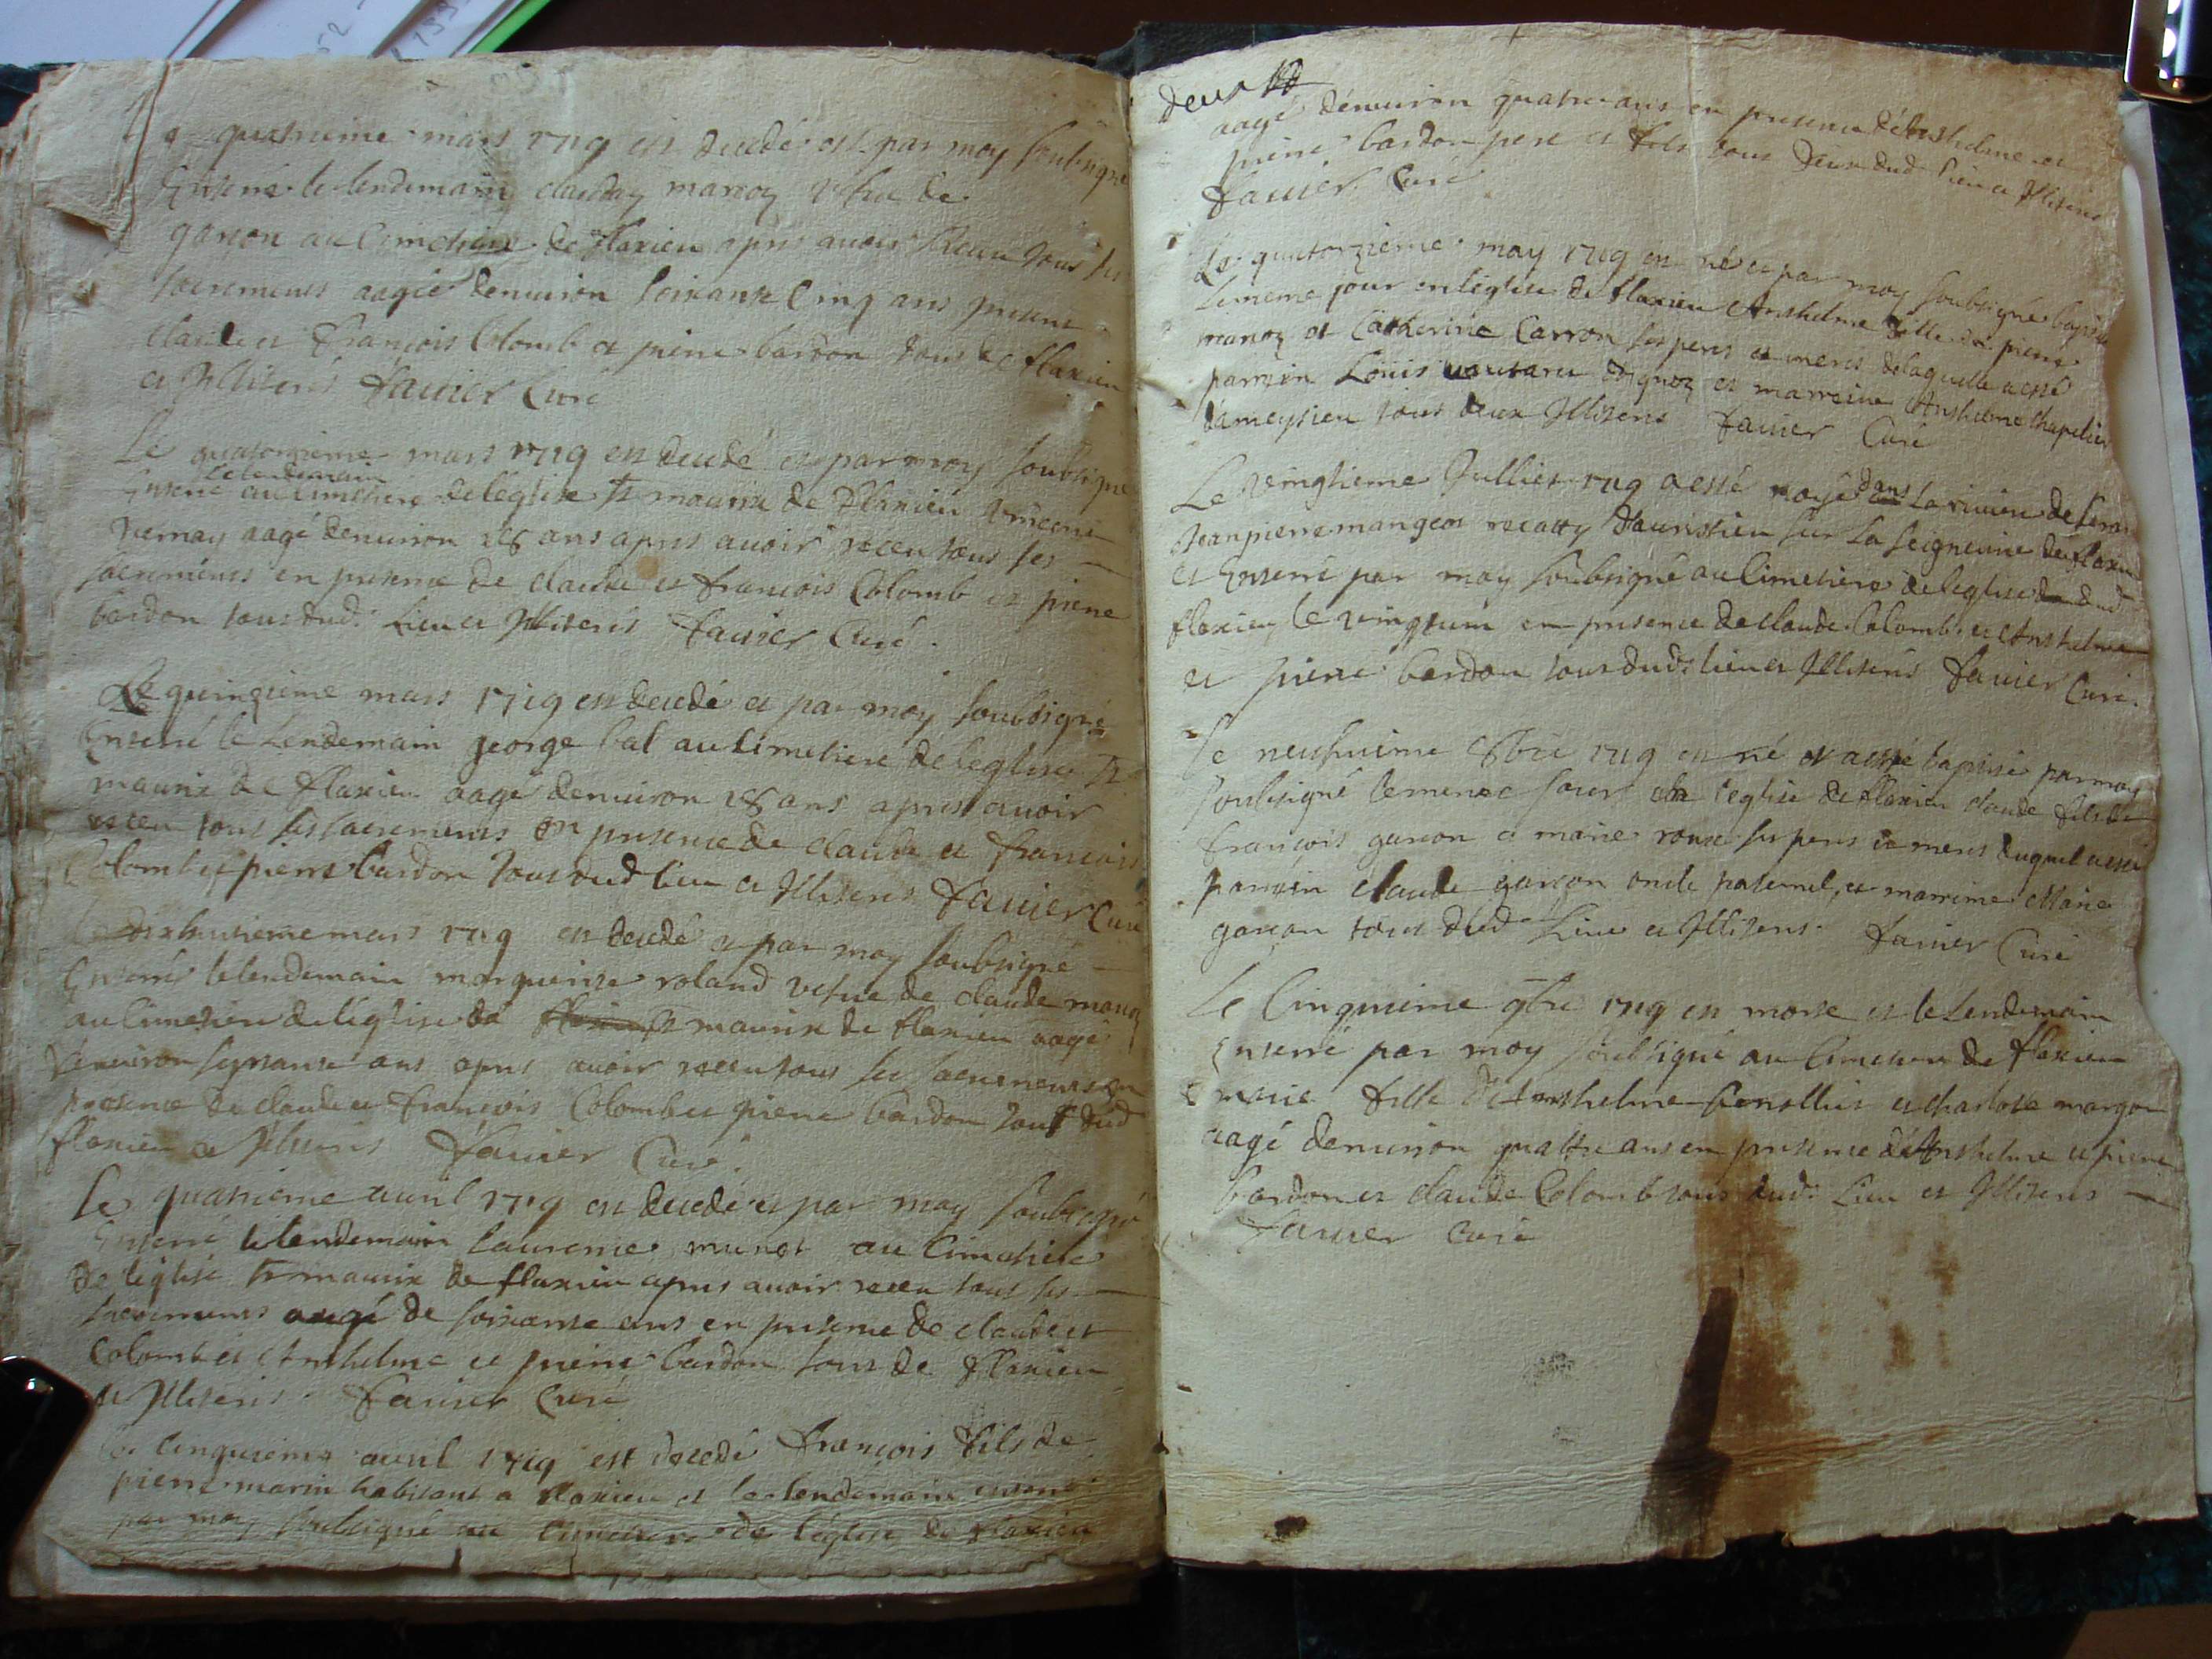 quatrieme mars 1719 est decedé et par moy soubsigné
Enterré le lendemain claudaz manoz vefve de
garcon au Cimetiere de flaxieu apres avoir Receu tous les
sacrements aagée denuiron soixante Cinq ans present
claude et françois Colomb et pierre bardon tous de flaxieu
et Illiterés fauier Curé
Le quatorzieme mars 1719 est decedé et par moy soubsigné
le lendemain
Enterré au Cimetiere de leglise st maurix de flaxieu vincent
vernay aagé denuiron 25 ans apres auoir receu tous les
sacrements en presence de claude et francois Colomb et pierre
bardon tous dud. Lieu et Illiterés fauier Curé.
Le quinzieme mars 1719 est decedé et par moy soubsigné
Enterré le Lendemain george bal au Cimetiere de leglise st
maurix de flaxieu aagé denuiron 25 ans apres auoir
receu tous les sacrements en presence de claude et francois
Colomb et pierre bardon tous dud lieu et Illiterés fauier Curé
Le dixhuitieme mars 1719 est decedé et par moy soubsigné
Enterré le lendemain marguerite roland vefue de claude manoz
au Cimetiere de l'église de flaxieu st maurix de flaxieu aagé
denuiron septante ans apres auoir receu tous les sacrements en
presence de claude et francois Colomb et pierre bardon tous dud
flaxieu et Illiterés fauier Curé.
Le quatrieme auril 1719 est decedé et par moy soubsigné
Enterré le lendemain laurence munet au Cimetiere
de l'église st maurix de flaxieu apres auoir receu tous les
sacrements aagé de soixante ans en presence de claude et
Colomb et Anthelme et pierre bardon tous de flaxieu
et Illiterés. fauier Curé
Le cinquieme auril 1719 est decedé françois fils de
pierre marin habitant a flaxieu et le lendemain enterré
par moy soubsigné au cimetiere de l'église de flaxieu
deux
aagé denuiron quatre ans en presence de Anthelme et
pierre bardon pere et fils tous deux dud lieu et Illiterés
fauier Curé
Le quatorzieme may 1719 est né et par moy soubsigné baptisé
le meme jour en l'eglise de flaxieu Anthelme fille de pierre
manoz et Catherine Carron ses peres et meres de laquelle a esté
parrein Louis et marreine Anthelme Chapelier
dameysieu tous deux Illiterés fauier Curé
Le vingtieme Jullier 1719 a esté noyé dans la riuiere de seran
Jean pierre mangeot recatty sur la seigneurie de flaxieu
et Enterré par moy soubsigné au Cimetiere de leglise dud
flaxieu le vingtun en presence de claude Colomb et Anthelme
et pierre bardon tous dud. lieu et Illiterés fauier Curé.
Le neufuieme 8bre 1719 est né et a esté baptisé par moy
soubsigné le meme jour en l'eglise de flaxieu claude fils de
françois garcon et marie roux ses peres et meres duquel a esté
parrein claude garcon oncle paternel, et marreine Marie
garcon tous dud Lieu et Illiterés. fauier Curé
Le Cinquieme 9bre 1719 est morte et le Lendemain
Enterré par moy soubsigné au Cimetiere de flaxieu
marie fille de Anthelme et charlote mangot
aagé denuiron quattre ans en presence de Anthelme et pierre
bardon et claude Colomb tous dud. Lieu et Illiterés
fauier Curé